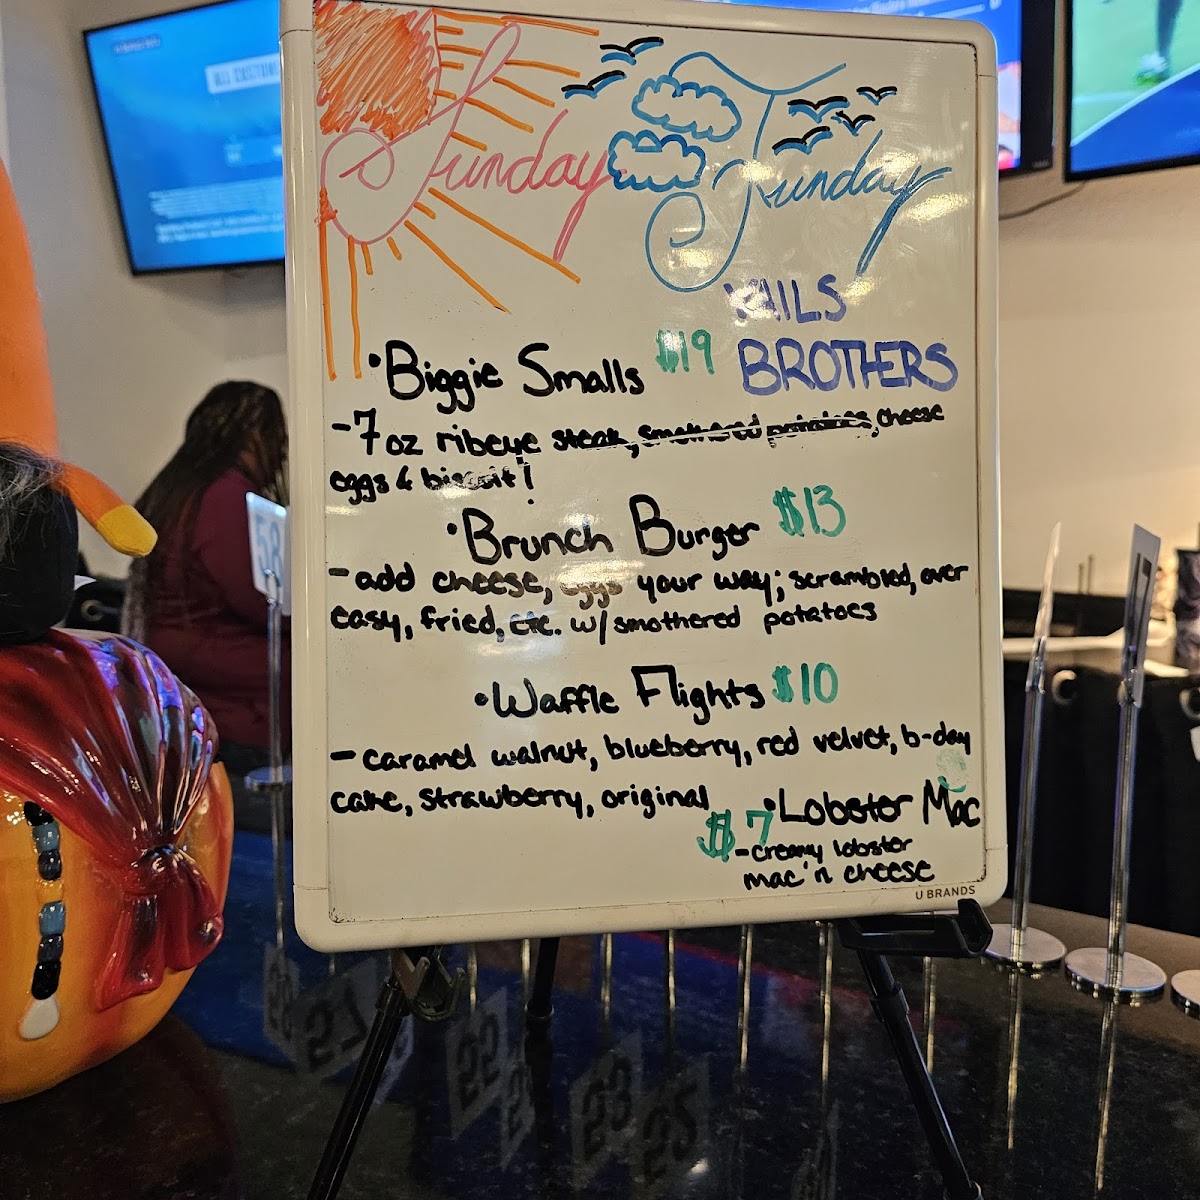 Sunday Funday
VAILS
BROTHERS
•Biggie Smalls $19
-7 oz ribeye steak, smothered potatoes, cheese
eggs & biscuit!
•Brunch Burger $13
-add cheese, eggs your way; scrambled, over
easy, fried, etc. w/ smothered potatoes
•Waffle Flights $10
-caramel walnut, blueberry, red velvet, b-day
cake, strawberry, original
•Lobster Mac
$7
-creamy lobster
mac 'n cheese
U BRANDS
58